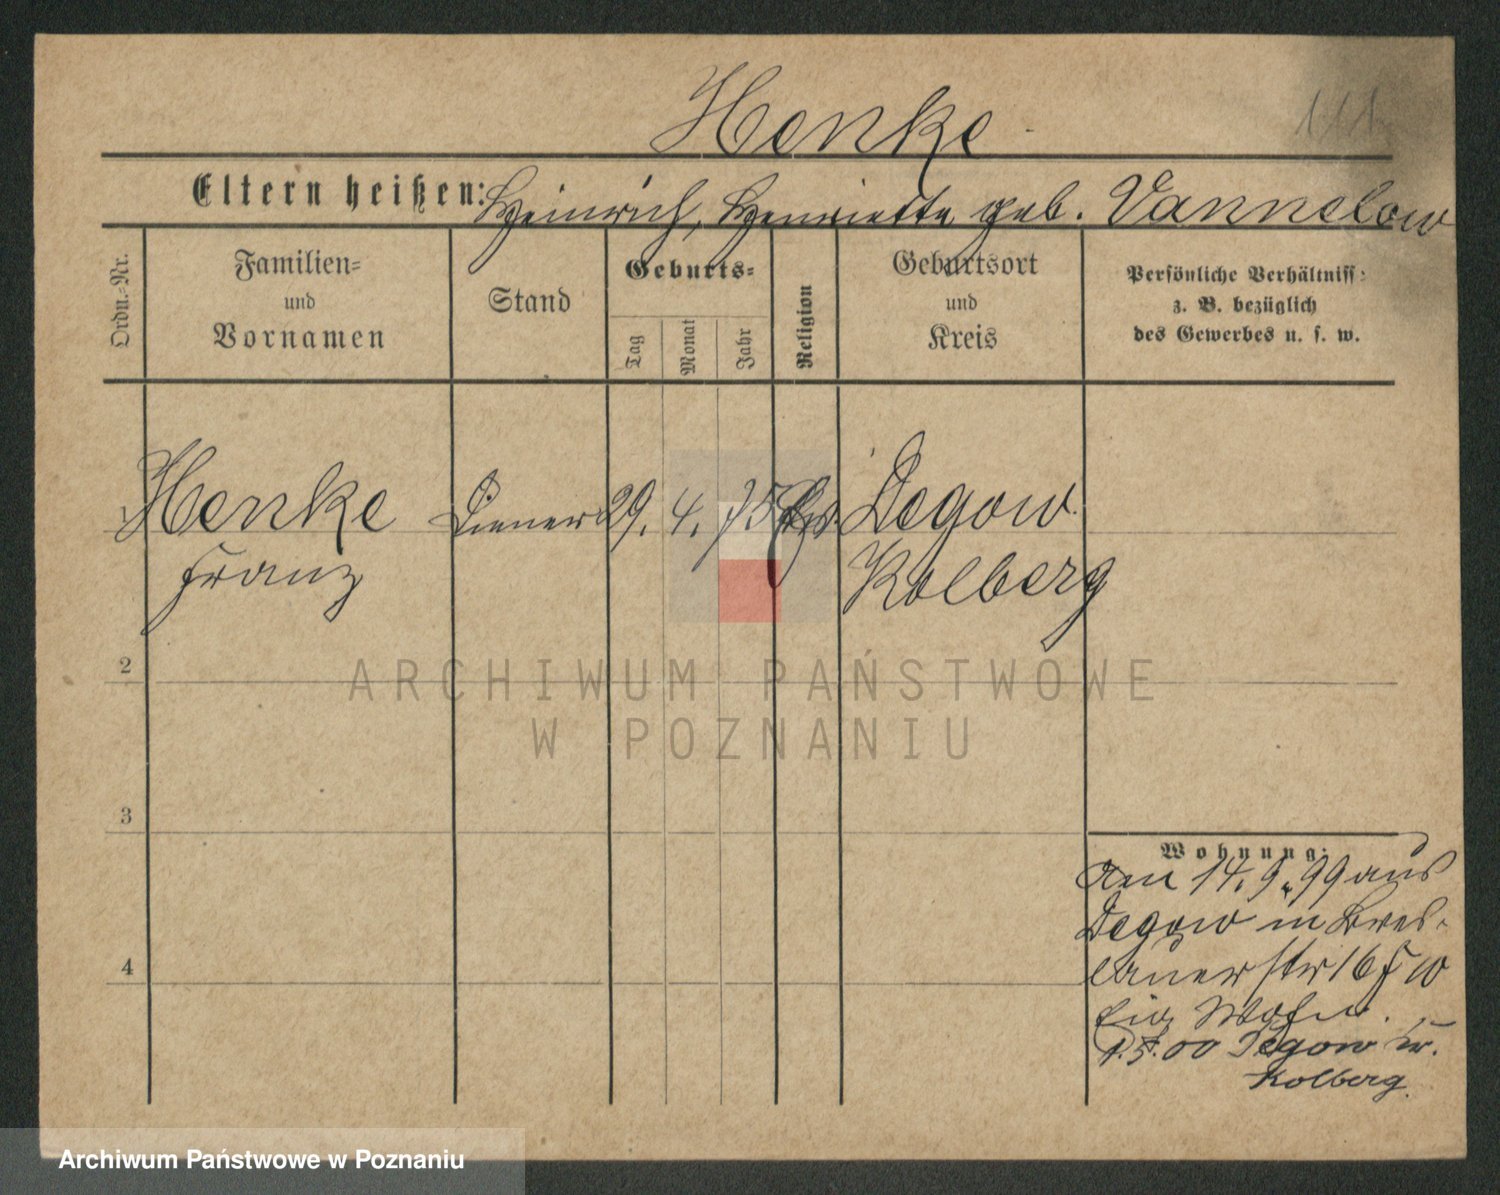 Henke
111
Eltern heißen: Heinrich, Henriette geb. Vannelow
Ordn.-Nr.
Familien-
und
Vornamen
Stand
Geburts-
Tag
Monat
Jahr
Religion
Geburtsort
und
Kreis
Persönliche Verhältniss:
z. B. bezüglich
des Gewerbes u. s. w.
1 Henke Diener 29. 4. 75 Ev. Degow
Franz Kolberg
2
ARCHIWUM PAŃSTWOWE
W POZNANIU
3
Wohnung:
Am 14. 9. 99 aus
Degow in Bres-
lauerstr 16
4
1.5.00 Degow Kr.
Kolberg.
Archiwum Państwowe w Poznaniu